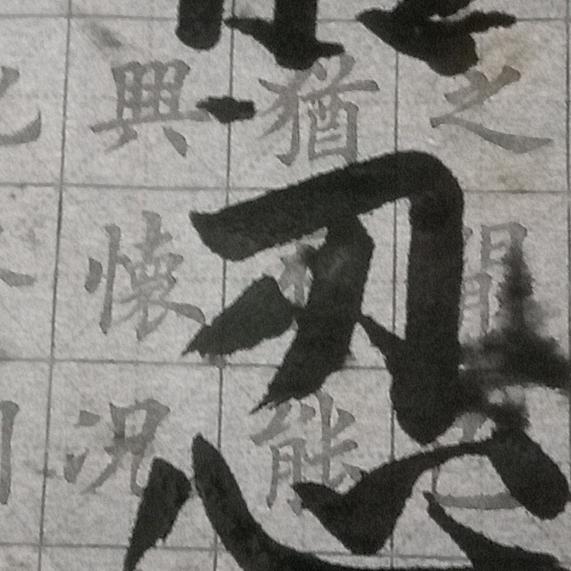 忍
之間已
猶不能
興懷況